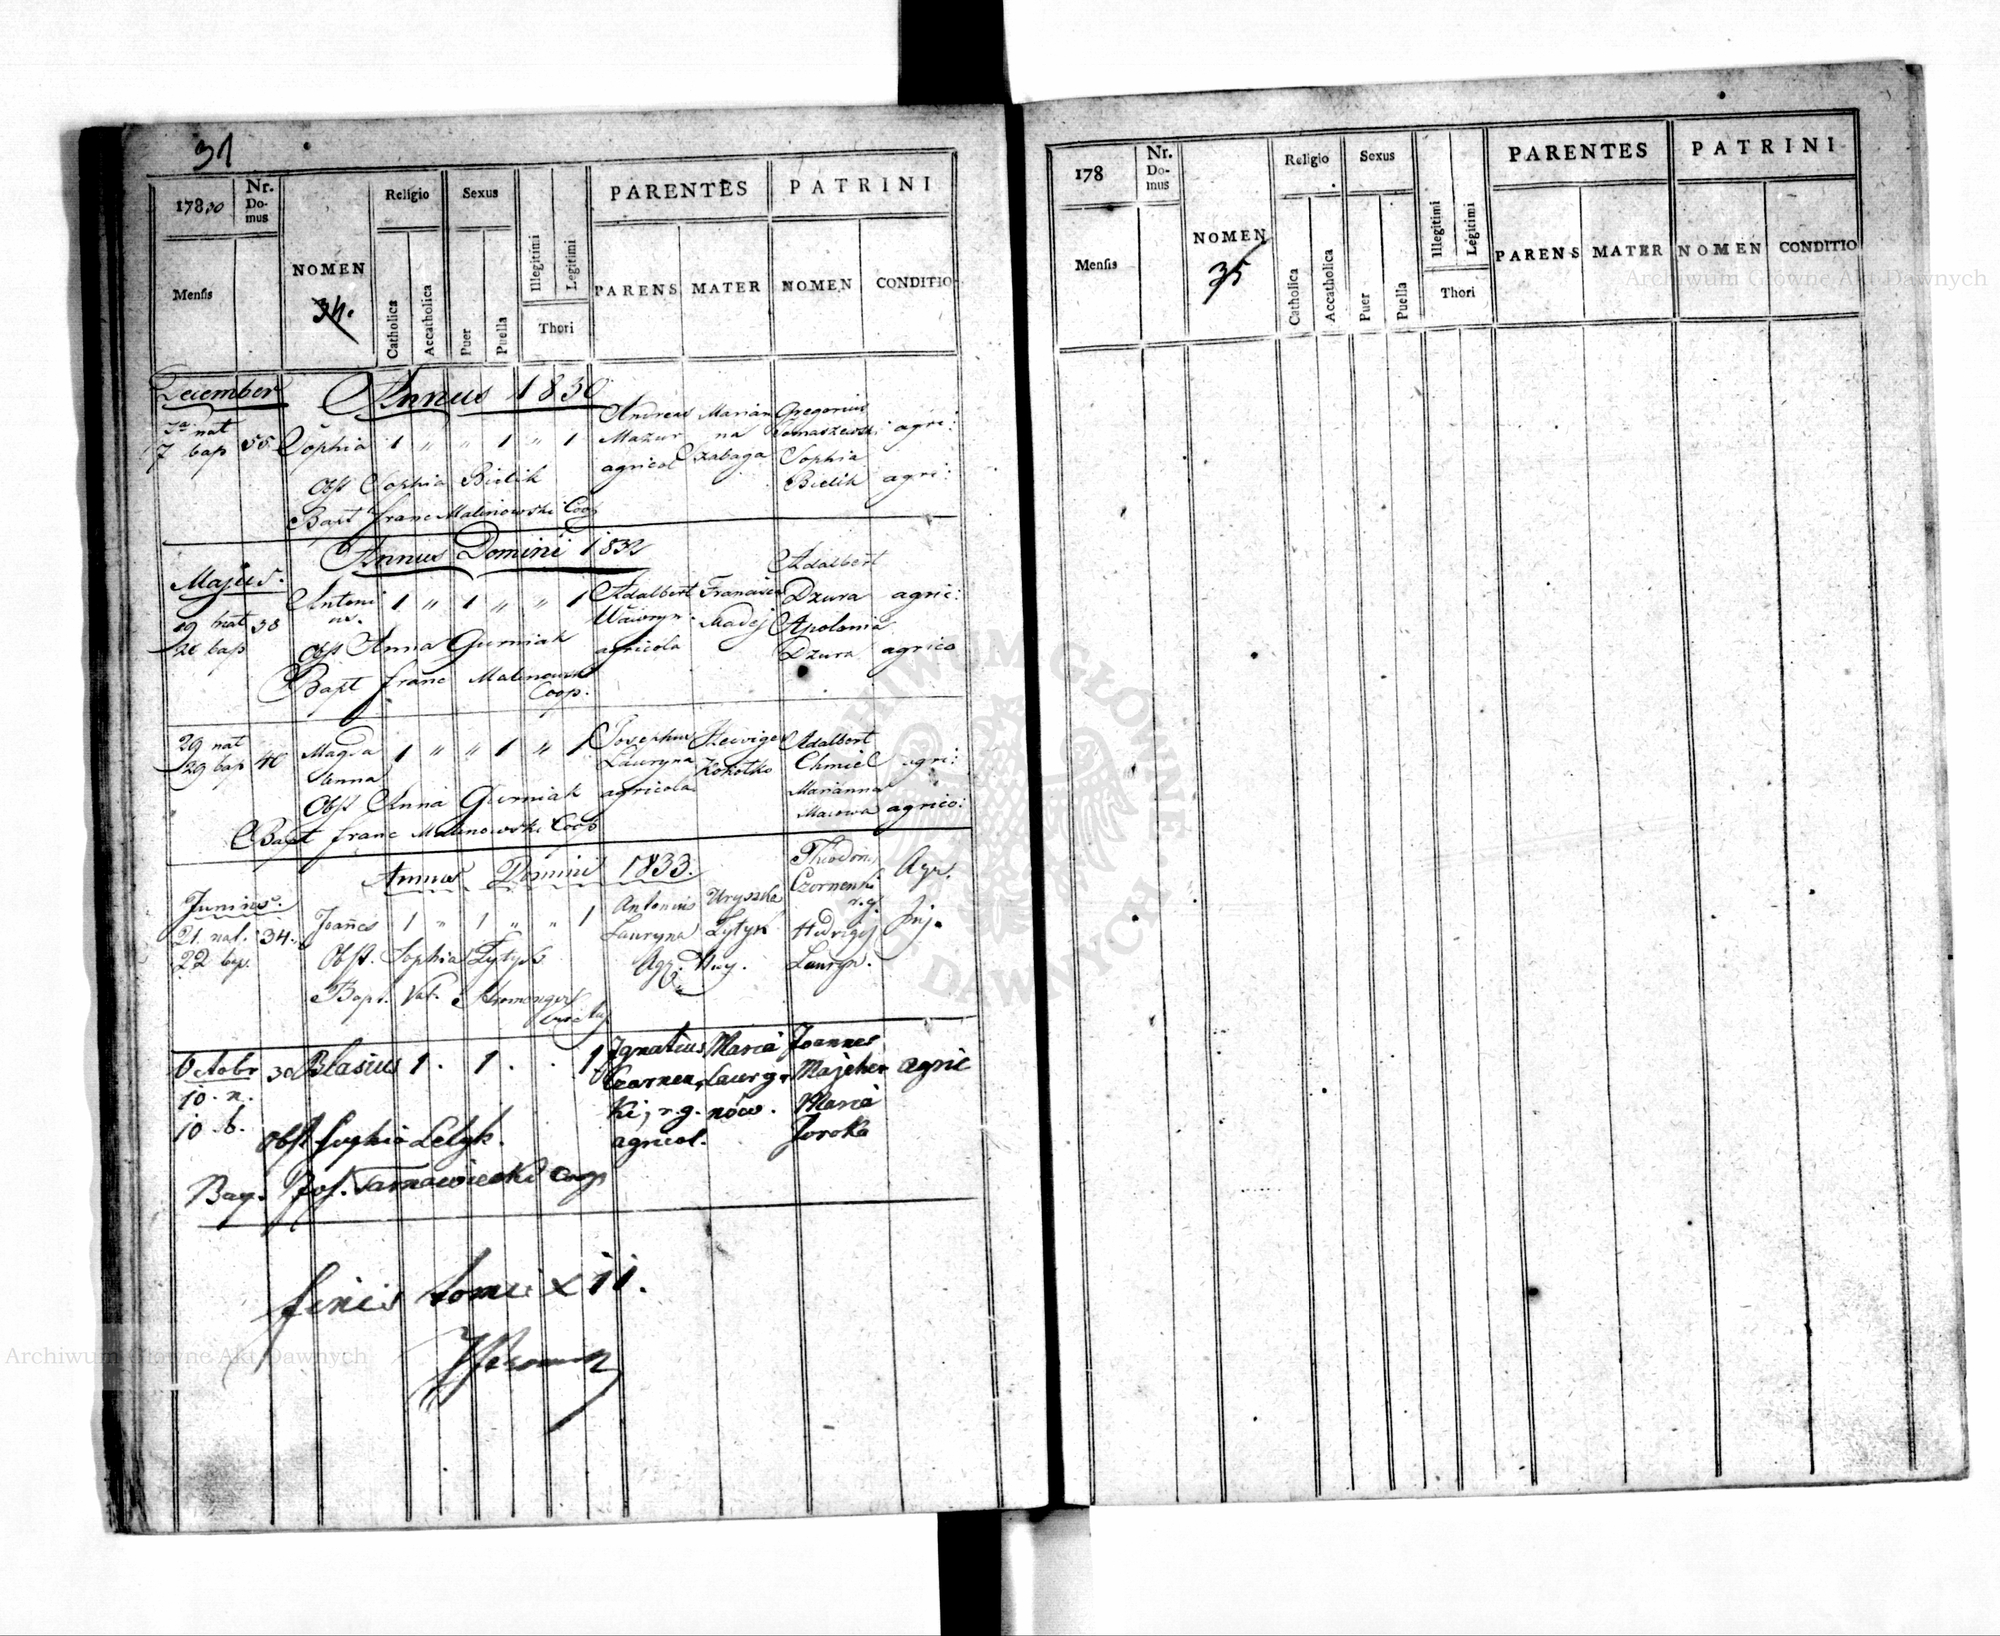 31
178 30
Nr. Domus
NOMEN
34.
Religio
Sexus
Illegitimi
Legitimi
Thori
PARENTES
PATRINI
Mensis
Catholica
Accatholica
Puer
Puella
PARENS
MATER
NOMEN
CONDITIO
December Annus 1830
7 bap 55 Sophia 1 " " 1 " 1
Andreas
Mazur
agricol
Marian
na
Gregorius
Tomaszewski agri:
Sophia
Bielik agri:
Obst Sophia Bielik
Bapt franc Malinowski Coop
Annus Domini 1832
Majus.
19 nat 38
bap
Antoni
us. 1 " 1 " " 1
Adalbert
Wawryn
agricola
Francisca
Madej
Adalbert
Dzura agric:
Apolonia
Dzura agrico
Obst Anna Gurniak
Bapt franc Malinowski
Coop.
29 nat
29 bap 40
Magda
lenna 1 " " 1 " 1
Josephus
Lauryna
agricola
Hedviges
Kokotko
Adalbert
Chmiel agri:
Marianna
agrico:
Obst Anna Gurniak
Bapt franc Malinowski Coop
Annus Domini 1833.
Junius.
21. nat. 34.
22 bap.
Joanes 1 " 1 " " 1
Antonius
Lauryna
Agr.
Lytyk
Theodor
r.g. Agr.
Hedvigis
Lauryn.
Obst. Sophia Lytyk
Bapt. Val.
Octobr 30 Blasius 1 . 1 . . 1
10. n.
10 b.
Ignatius
Czarnen,
ki, r.g.
agricol.
Maria
Lauryn
nów.
Joannes
Majcher agric
Maria
Joroka
Obst Sophia Letyk.
Bap. Jos. Tarnawiecki Coop
finis tomi XII.
178
Nr. Domus
NOMEN
35
Religio
Sexus
Illegitimi
Legitimi
Thori
PARENTES
PATRINI
Mensis
Catholica
Accatholica
Puer
Puella
PARENS
MATER
NOMEN
CONDITIO
Archiwum Główne Akt Dawnych
ARCHIWUM GŁÓWNE
AKT DAWNYCH
Archiwum Główne Akt Dawnych